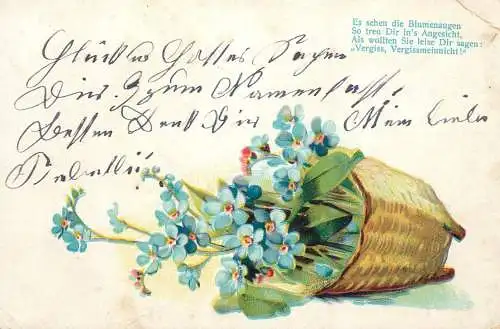 Es sehen die Blumenaugen
So treu Dir in's Angesicht,
Als wollten Sie leise Dir sagen:
„Vergiss, Vergissmeinnicht!"
Glück u Gottes Segen
Dir. zum Namensfest.
Besten Dank Dir Mein liebes